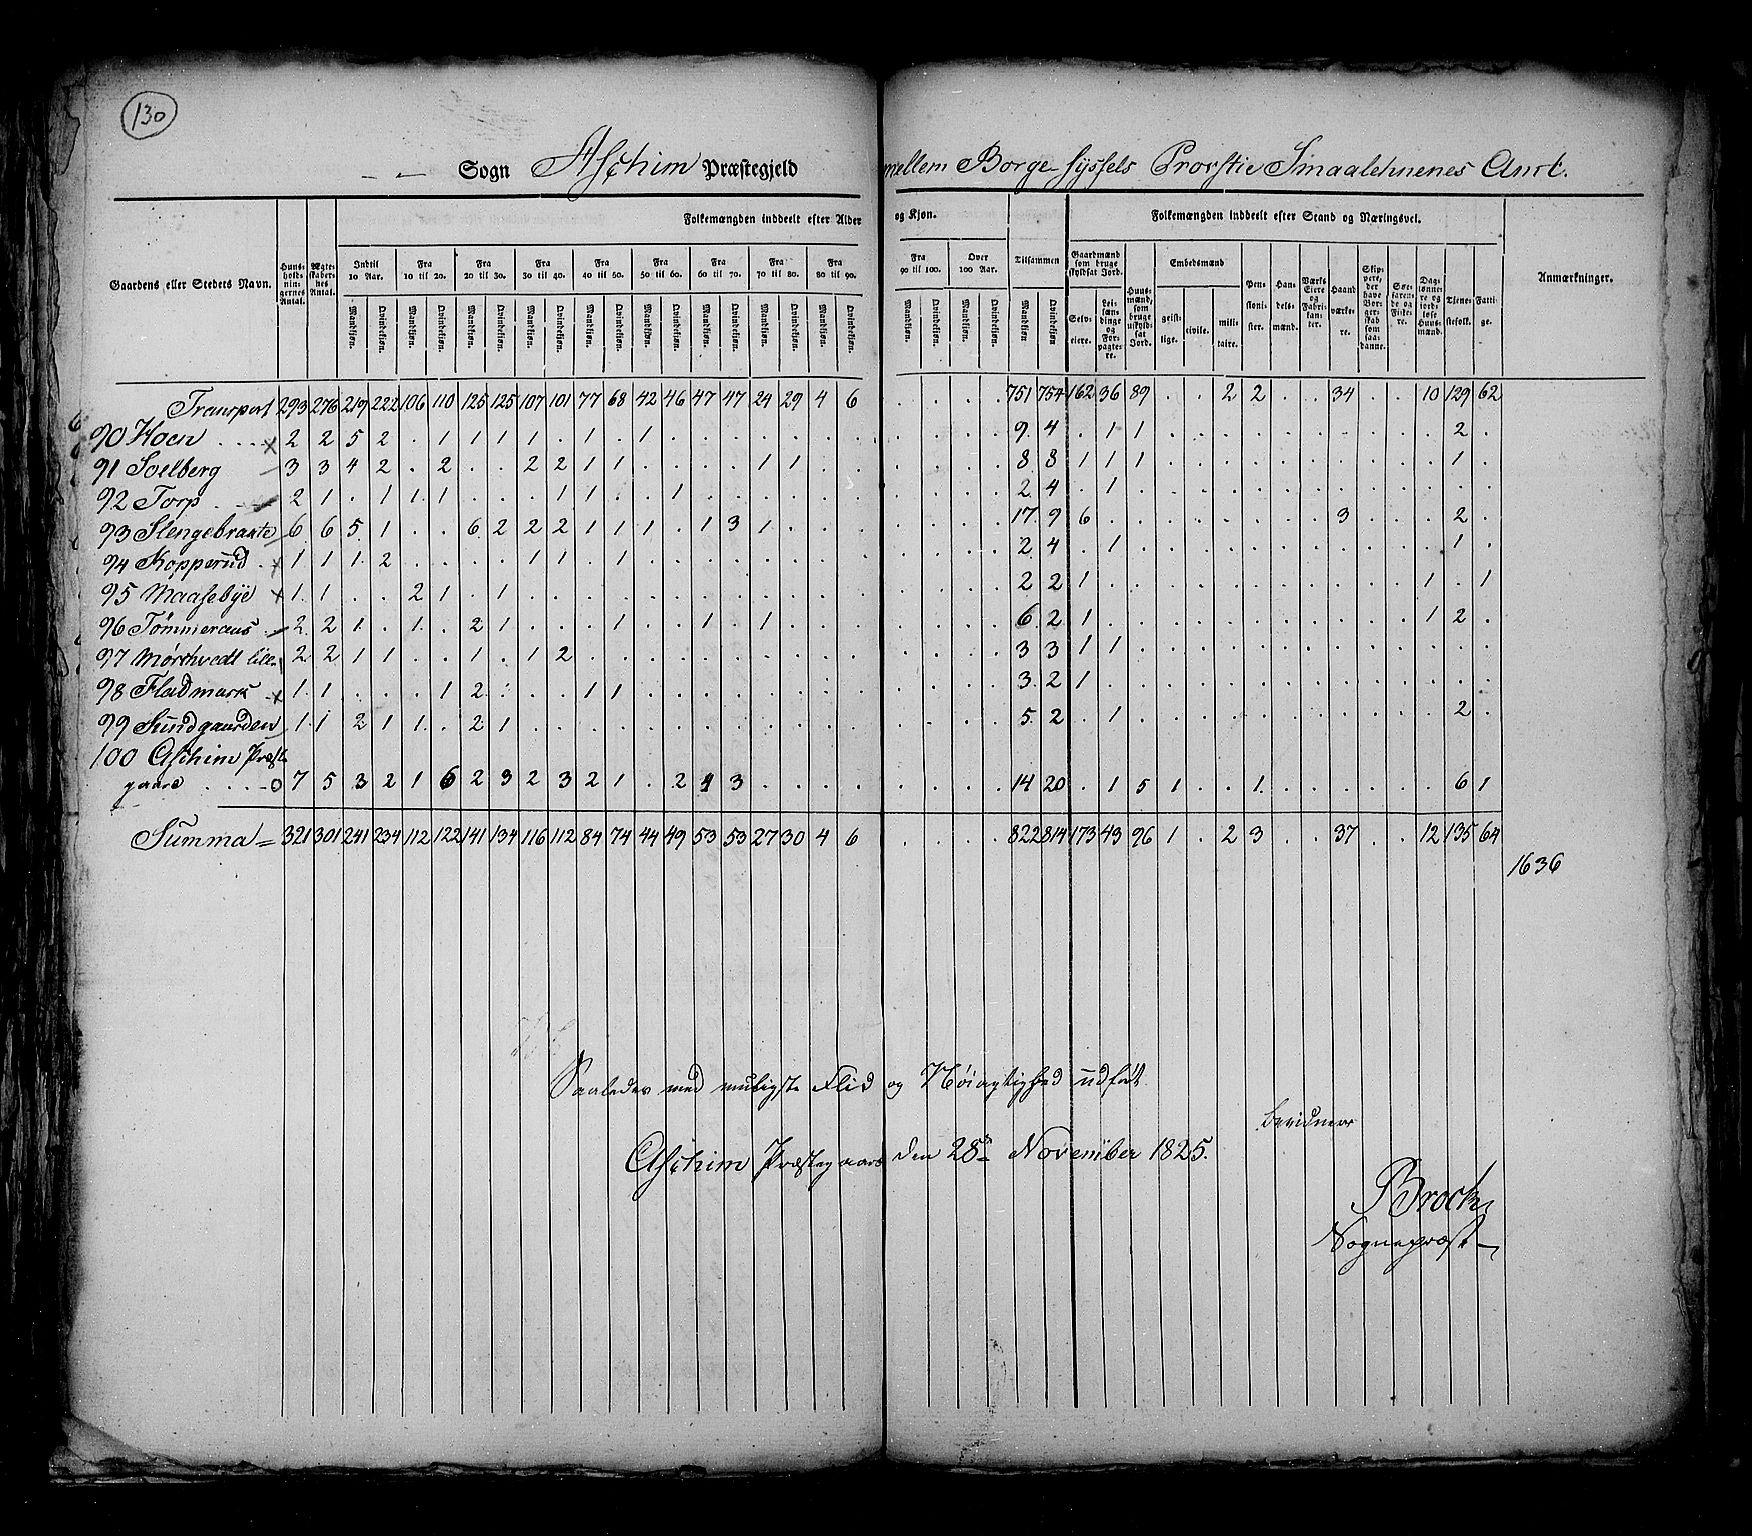 130
Sogn Aschim Præstegjeld mellem Borge-syssels Provstie Smaalehnenes Amt.
Folkemængden inddeelt efter Alder og Kjøn. Tilsammen Folkemængden inddeelt efter Stand og Næringsvei.
Gaardens eller Stedets Navn. Huus-holdningernes Antal. Ægteskabernes Antal. Indtil 10 Aar. Fra 10 til 20. Fra 20 til 30. Fra 30 til 40. Fra 40 til 50. Fra 50 til 60. Fra 60 til 70. Fra 70 til 80. Fra 80 til 90. Fra 90 til 100. Over 100 Aar. Gaardmænd som bruge skyldsat Jord. Huusmænd, som bruge uskyldsat Jord. Embedsmænd Pensionister. Handelsmænd. Værks Eiere og Fabrikanter. Haandværkere. Skippere, der have Borgerskab som saadanne. Søefarende og Fiskere. Daglønnere og jordløse Huusmænd. Tjenestefolk. Fattige. Anmærkninger.
Mandkjøn. Qvindekjøn. Mandkjøn. Qvindekjøn. Mandkjøn. Qvindekjøn. Mandkjøn. Qvindekjøn. Mandkjøn. Qvindekjøn. Mandkjøn. Qvindekjøn. Mandkjøn. Qvindekjøn. Mandkjøn. Qvindekjøn. Mandkjøn. Qvindekjøn. Mandkjøn. Qvindekjøn. Mandkjøn. Qvindekjøn. Mandkjøn. Qvindekjøn. Selveiere. Leilændinge og Forpagtere. geistlige. civile. militaire.
Transport 293 276 219 222 106 110 125 125 107 101 77 68 42 46 47 47 24 29 4 6 . . . . 751 754 162 36 89 . . 2 2 . . 34 . . 10 129 62
90 Hoen x 2 2 5 2 . 1 1 1 1 . 1 . 1 . . . . . . . . . . . 9 4 . 1 1 . . . . . . . . . . 2 .
91 Solberg 3 3 4 2 . 2 . . 2 2 1 1 . . . . 1 1 . . . . . . 8 8 1 1 1 . . . . . . . . . . 1 .
92 Torp 2 1 . 1 1 1 . . . 1 1 . . 1 . . . . . . . . . . 2 4 . 1 . . . . . . . . . . . . .
93 Slengebraate 6 6 5 1 . . 6 2 2 2 1 1 1 . 1 3 1 . . . . . . . 17 9 6 . . . . . . . . 3 . . . 2 .
94 Kopperud x 1 1 1 2 . . . . 1 1 . 1 . . . . . . . . . . . . 2 4 . 1 . . . . . . . . . . . 1 .
95 Maasebye x 1 1 . . 2 1 . 1 . . . . . . . . . . . . . . . . 2 2 1 . . . . . . . . . . . 1 . 1
96 Tømmeraas 2 2 1 . 1 . 2 1 . . . 1 . . 1 . 1 . . . . . . . 6 2 1 . . . . . . . . . . . 1 2 .
97 Mørthvedt lille 2 2 1 1 . . 1 . 1 2 . . . . . . . . . . . . . . 3 3 1 1 . . . . . . . . . . . . .
98 Fladmark x 1 1 . . . 1 2 . . . 1 1 . . . . . . . . . . . . 3 2 1 . . . . . . . . . . . . . .
99 Sundgaarden 1 1 2 1 1 . 2 1 . . . . . . . . . . . . . . . . 5 2 . 1 . . . . . . . . . . . 2 .
100 Aschim Præste
gaard o 7 5 3 2 1 6 2 3 2 3 2 1 . 2 1 3 . . . . . . . . 14 20 . 1 5 1 . . 1 . . . . . . 6 1
Summa = 321 301 241 234 112 122 141 134 116 112 84 74 44 49 53 53 27 30 4 6 . . . . 822 814 173 43 96 1 . 2 3 . . 37 . . 12 135 64
1636
Saaledes med muligste Flid og Nøiagtighed udført
bevidner
Aschim Præstegaard den 28de November 1825.
Brock,
Sognepræst